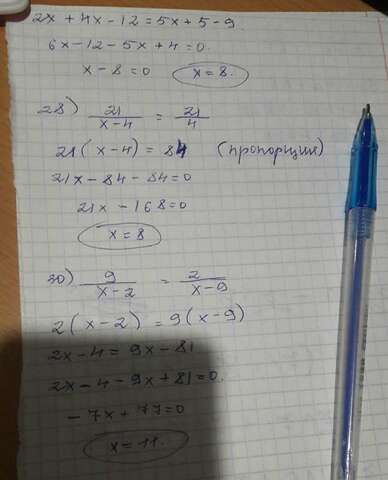 2x + 4x - 12 = 5x + 5 - 9
6x - 12 - 5x + 4 = 0
x - 8 = 0   x = 8.
28) 21/(x - 4) = 21/4
21(x - 4) = 84 (пропорция)
21x - 84 - 84 = 0
21x - 168 = 0
x = 8
30) 9/(x - 2) = 2/(x - 9)
2(x - 2) = 9(x - 9)
2x - 4 = 9x - 81
2x - 4 - 9x + 81 = 0.
- 7x + 77 = 0
x = 11.